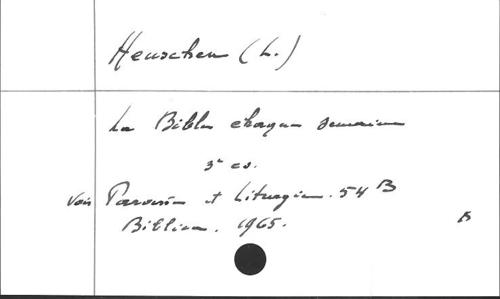 Heuschen (L.)
La Bible chaque semaine
3e ex.
Voir Paroisse et Liturgie. 54 B
Biblica. 1965.
B